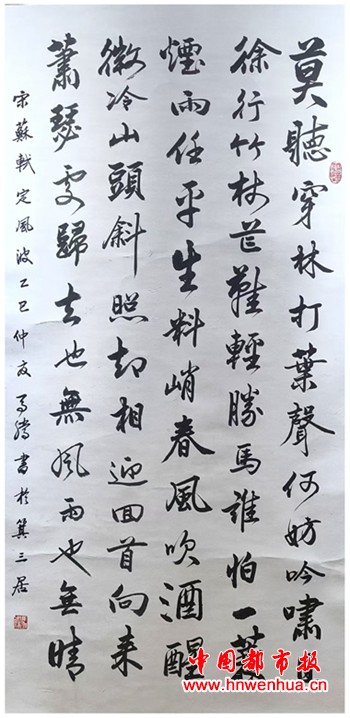 莫聽穿林打葉聲何妨吟嘯且
徐行竹杖芒鞋輕勝馬誰怕一蓑
煙雨任平生料峭春風吹酒醒
微冷山頭斜照却相迎回首向来
蕭瑟處歸去也無風雨也無晴
宋蘇軾定風波乙巳仲夏書於箕三居
中國都市报
www.hnwenhua.cn